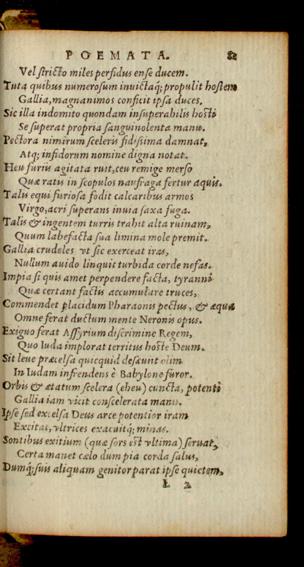 POEMATA. 82
Vel stricto miles perfidus ense ducem.
Tuta quibus numerosum inuictaq; propulit hostem
Gallia, magnanimos conficit ipsa duces,
Sic illa indomito quondam insuperabilis hosti
Se superat propria sanguinolenta manu.
Pectora nimirum sceleris fidissima damnat,
Atq; infidorum nomine digna notat.
Heu furiis agitata ruit, ceu remige merso
Quæ ratis in scopulos naufraga fertur aquis.
Talis equi furiosa fodit calcaribus armos
Virgo, acri superans inuia saxa fuga.
Talis & ingentem turris trahit alta ruinam,
Quum labefacta sua limina mole premit.
Gallia crudeles vt sic exerceat iras,
Nullum auido linquit turbida corde nefas.
Impia si quis amet perpendere facta, tyranni
Quæ certant factis accumulare truces,
Commendet placidum Pharaonis pectus, & æqua
Omne ferat ductum mente Neronis opus.
Exiguo ferat Assyrium discrimine Regem,
Quo Iuda implorat territus hoste Deum.
Sit leue præcelsa quicquid desæuit olim
In Iudam infrendens è Babylone furor.
Orbis & ætatum scelera (eheu) cuncta, potenti
Gallia iam vicit conscelerata manu.
Ipse sed excelsa Deus arce potentior iram
Excitas, vltrices exacuitq; minas.
Sontibus exitium (quæ sors est vltima) seruat,
Certa manet cælo dum pia corda salus,
Dumq; suis aliquam genitor parat ipse quietem,
L 2